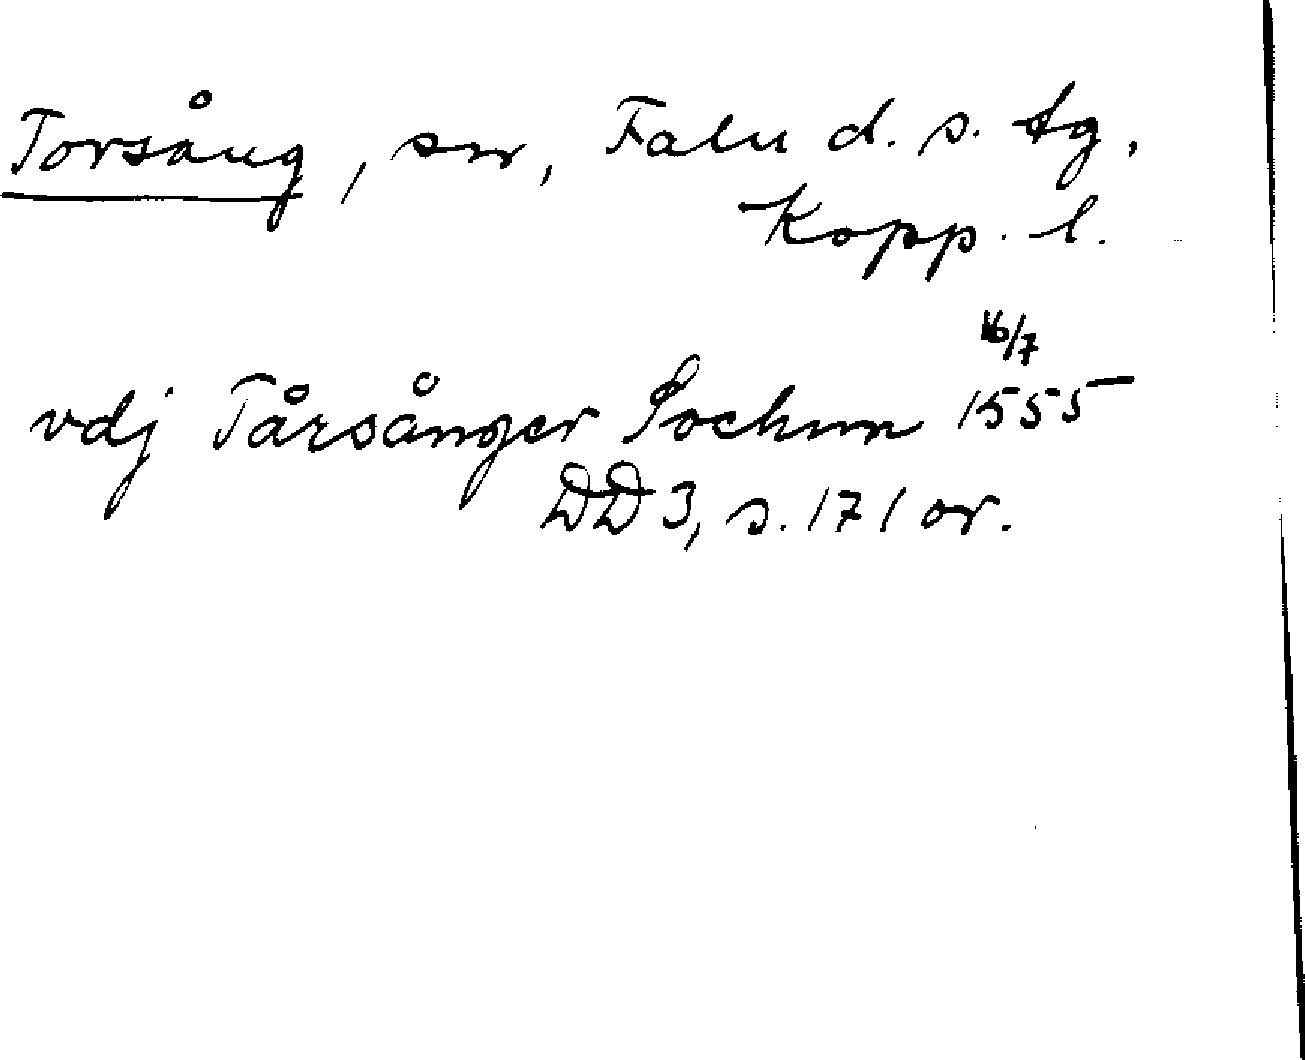 Torsång, sn, Falu d. s. tg,
Kopp. l.
16/7
vdj Tårsånger Sochnn 1555
DD 3, s. 171 or.